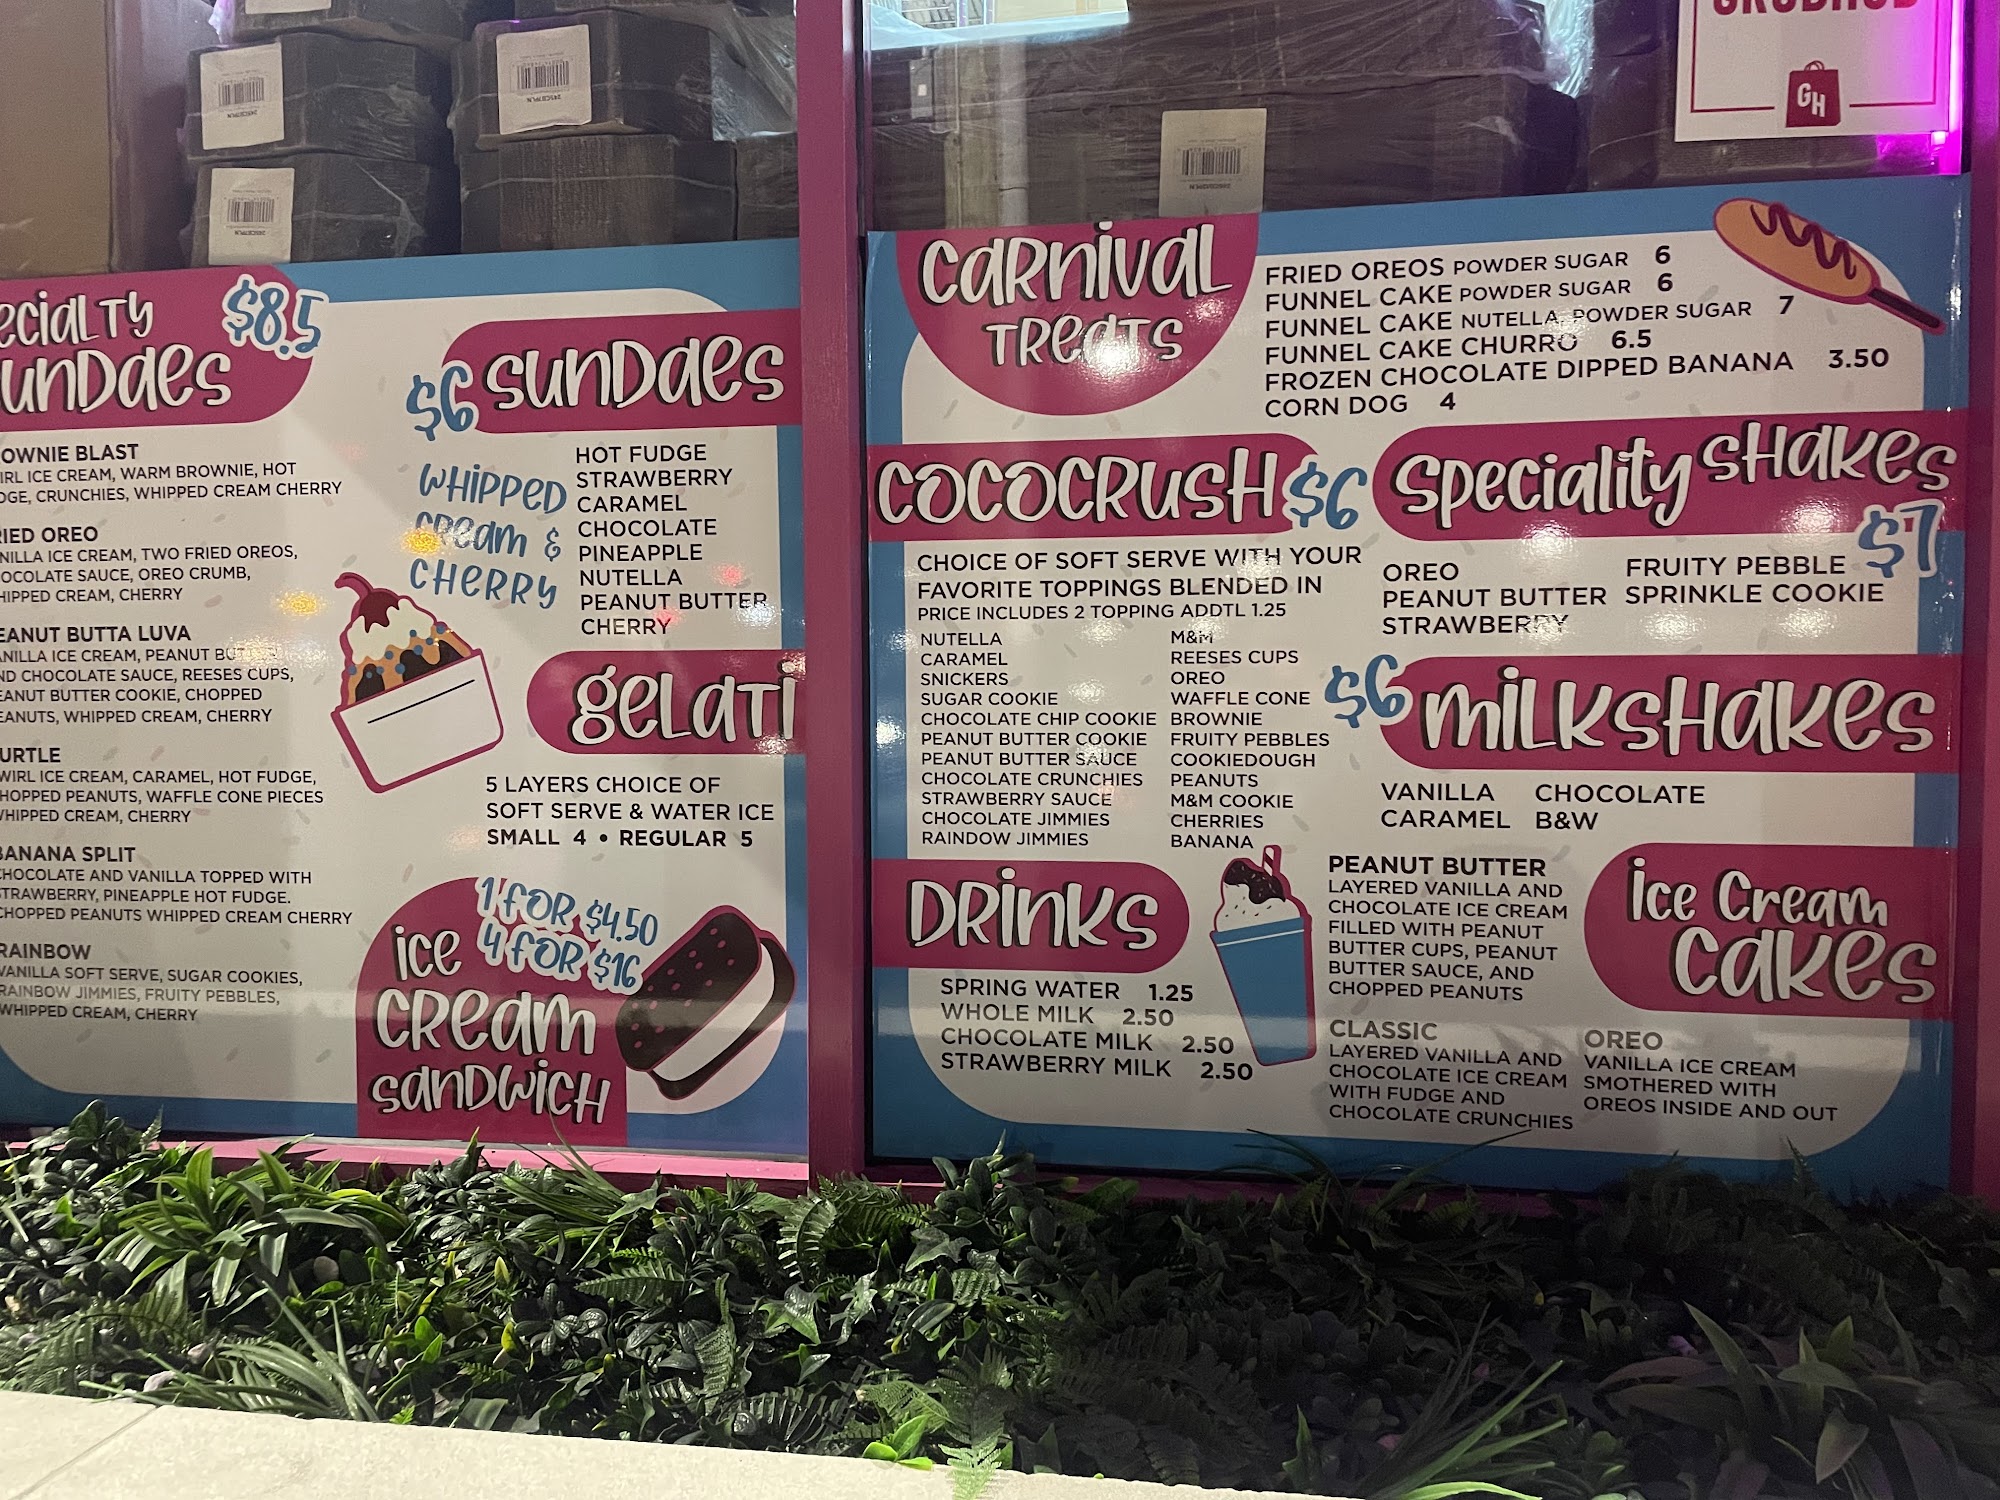 ecialty
undaes
$8.5
OWNIE BLAST
IRL ICE CREAM, WARM BROWNIE, HOT
DGE, CRUNCHIES, WHIPPED CREAM CHERRY
RIED OREO
NILLA ICE CREAM, TWO FRIED OREOS,
OCOLATE SAUCE, OREO CRUMB,
HIPPED CREAM, CHERRY
EANUT BUTTA LUVA
ANILLA ICE CREAM, PEANUT
ND CHOCOLATE SAUCE, REESES CUPS,
EANUT BUTTER COOKIE, CHOPPED
EANUTS, WHIPPED CREAM, CHERRY
URTLE
WIRL ICE CREAM, CARAMEL, HOT FUDGE,
HOPPED PEANUTS, WAFFLE CONE PIECES
WHIPPED CREAM, CHERRY
BANANA SPLIT
CHOCOLATE AND VANILLA TOPPED WITH
STRAWBERRY, PINEAPPLE HOT FUDGE.
CHOPPED PEANUTS WHIPPED CREAM CHERRY
RAINBOW
VANILLA SOFT SERVE, SUGAR COOKIES,
RAINBOW JIMMIES, FRUITY PEBBLES,
WHIPPED CREAM, CHERRY
$6 sundaes
WHIPPED
cream &
CHERRY
HOT FUDGE
STRAWBERRY
CARAMEL
CHOCOLATE
PINEAPPLE
NUTELLA
PEANUT BUTTER
CHERRY
gelati
5 LAYERS CHOICE OF
SOFT SERVE & WATER ICE
SMALL 4 • REGULAR 5
1 FOR $4.50
4 FOR $16
ice
cream
sandwich
GRUBHUB
GH
carnival
Treats
FRIED OREOS POWDER SUGAR 6
FUNNEL CAKE POWDER SUGAR 6
FUNNEL CAKE NUTELLA, POWDER SUGAR 7
FUNNEL CAKE CHURRO 6.5
FROZEN CHOCOLATE DIPPED BANANA 3.50
CORN DOG 4
COCOCRUSH $6
CHOICE OF SOFT SERVE WITH YOUR
FAVORITE TOPPINGS BLENDED IN
PRICE INCLUDES 2 TOPPING ADDTL 1.25
NUTELLA
CARAMEL
SNICKERS
SUGAR COOKIE
CHOCOLATE CHIP COOKIE
PEANUT BUTTER COOKIE
PEANUT BUTTER SAUCE
CHOCOLATE CRUNCHIES
STRAWBERRY SAUCE
CHOCOLATE JIMMIES
RAINDOW JIMMIES
M&M
REESES CUPS
OREO
WAFFLE CONE
BROWNIE
FRUITY PEBBLES
COOKIEDOUGH
PEANUTS
M&M COOKIE
CHERRIES
BANANA
speciality shakes
$7
OREO
PEANUT BUTTER
STRAWBERRY
FRUITY PEBBLE
SPRINKLE COOKIE
$6 milkshakes
VANILLA CHOCOLATE
CARAMEL B&W
Drinks
SPRING WATER 1.25
WHOLE MILK 2.50
CHOCOLATE MILK 2.50
STRAWBERRY MILK 2.50
ice cream
cakes
PEANUT BUTTER
LAYERED VANILLA AND
CHOCOLATE ICE CREAM
FILLED WITH PEANUT
BUTTER CUPS, PEANUT
BUTTER SAUCE, AND
CHOPPED PEANUTS
CLASSIC
LAYERED VANILLA AND
CHOCOLATE ICE CREAM
WITH FUDGE AND
CHOCOLATE CRUNCHIES
OREO
VANILLA ICE CREAM
SMOTHERED WITH
OREOS INSIDE AND OUT